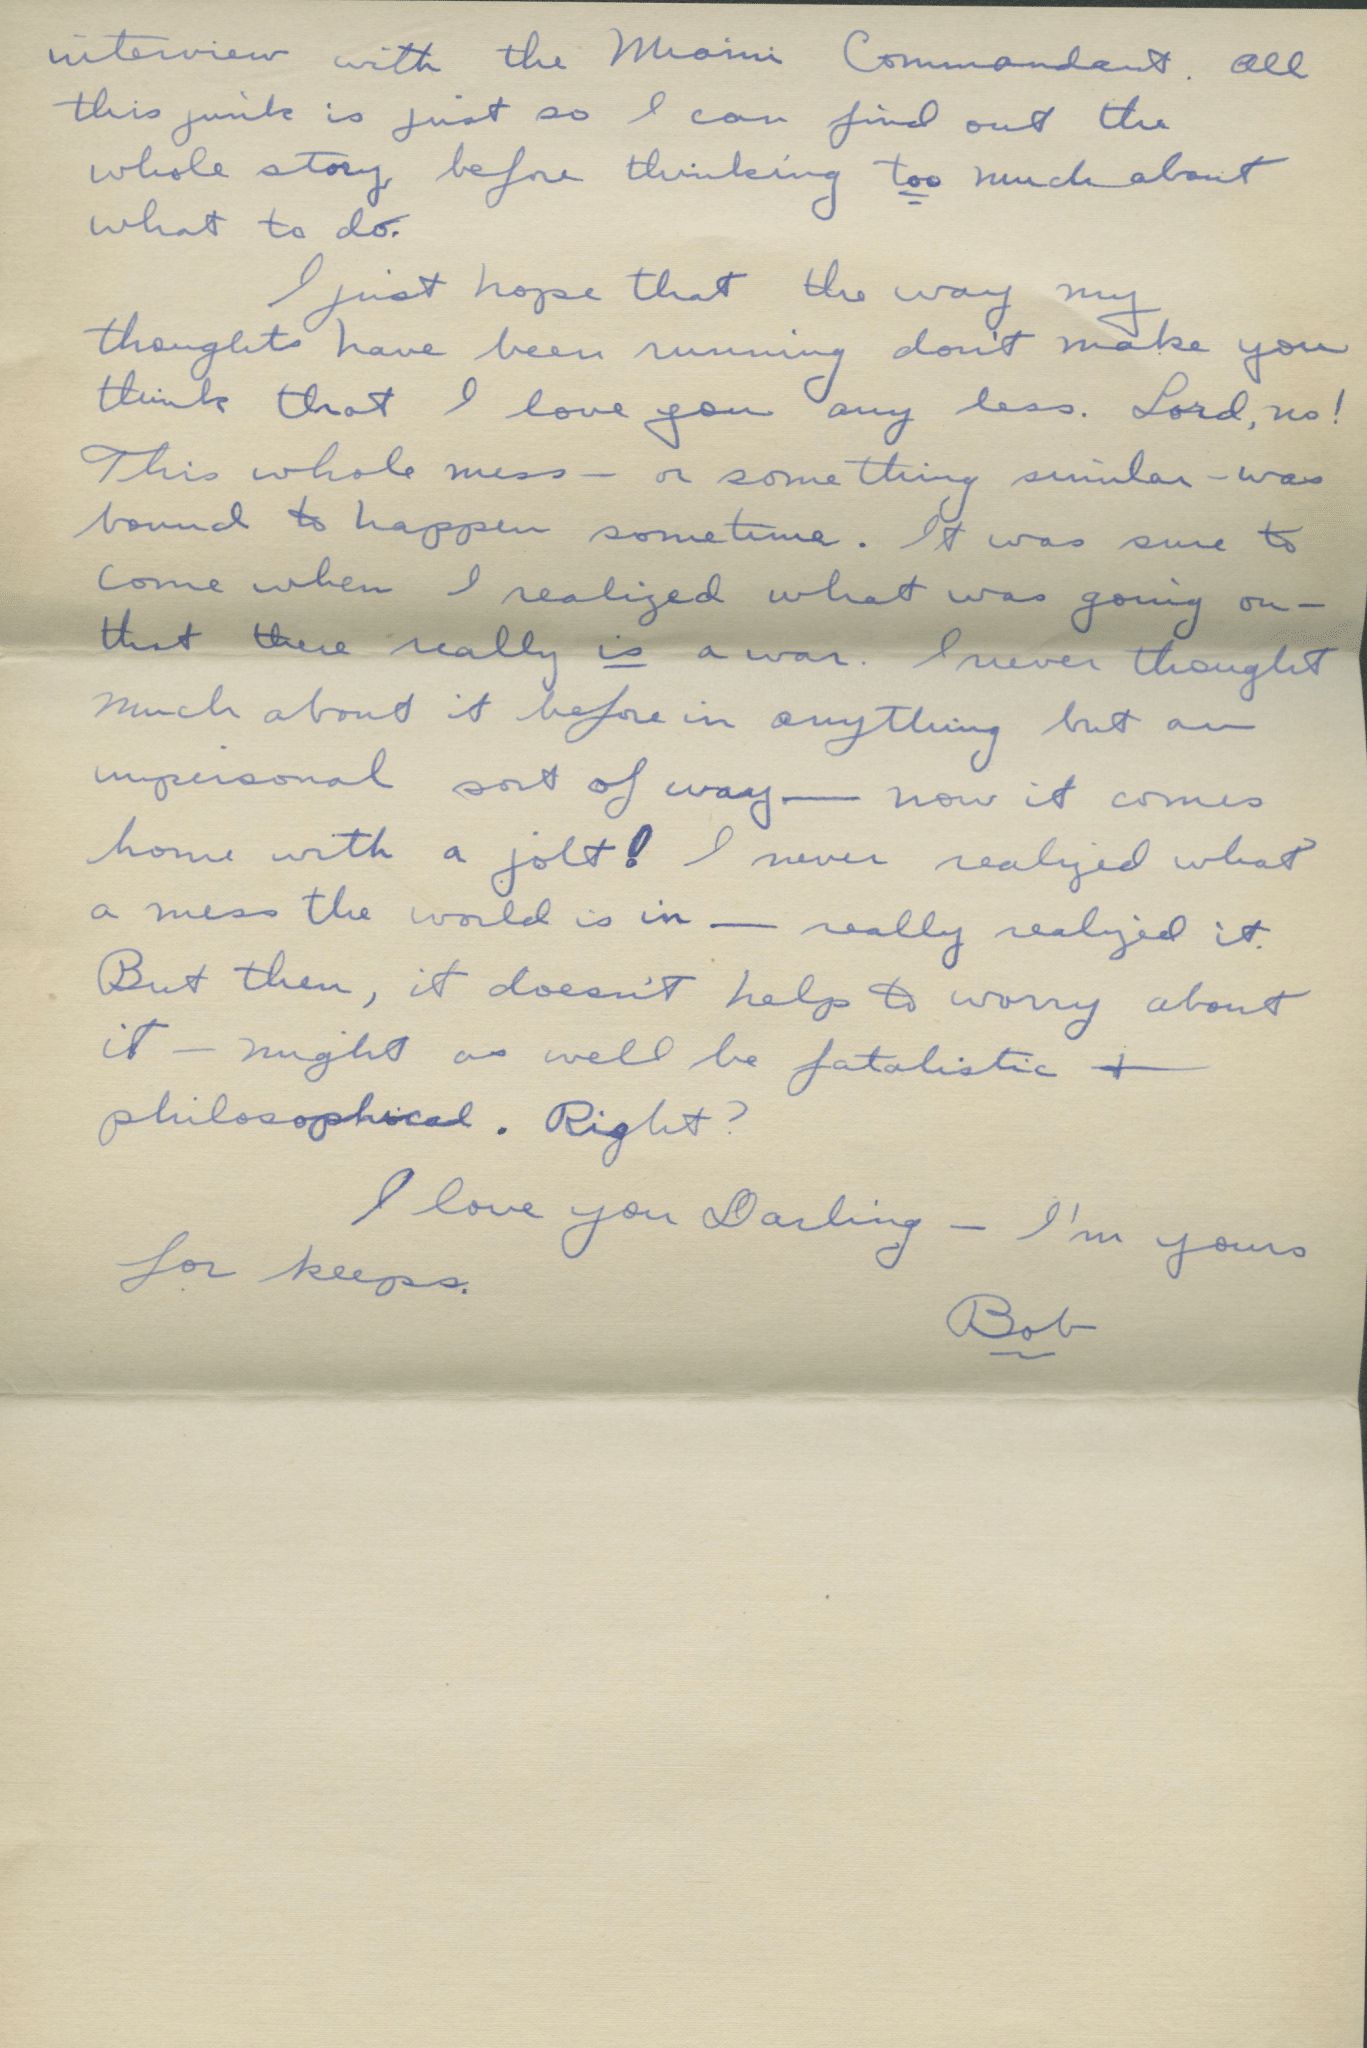 interview with the Miami Commandant. All
this junk is just so I can find out the
whole story, before thinking too much about
what to do.
I just hope that the way my
thoughts have been running don't make you
think that I love you any less. Lord, no!
This whole mess — or something similar — was
bound to happen sometime. It was sure to
come when I realized what was going on —
that there really is a war. I never thought
much about it before in anything but an
impersonal sort of way — now it comes
home with a jolt! I never realized what
a mess the world is in — really realized it.
But then, it doesn't help to worry about
it — might as well be fatalistic +
philosophical. Right?
I love you Darling — I'm yours
for keeps.
Bob